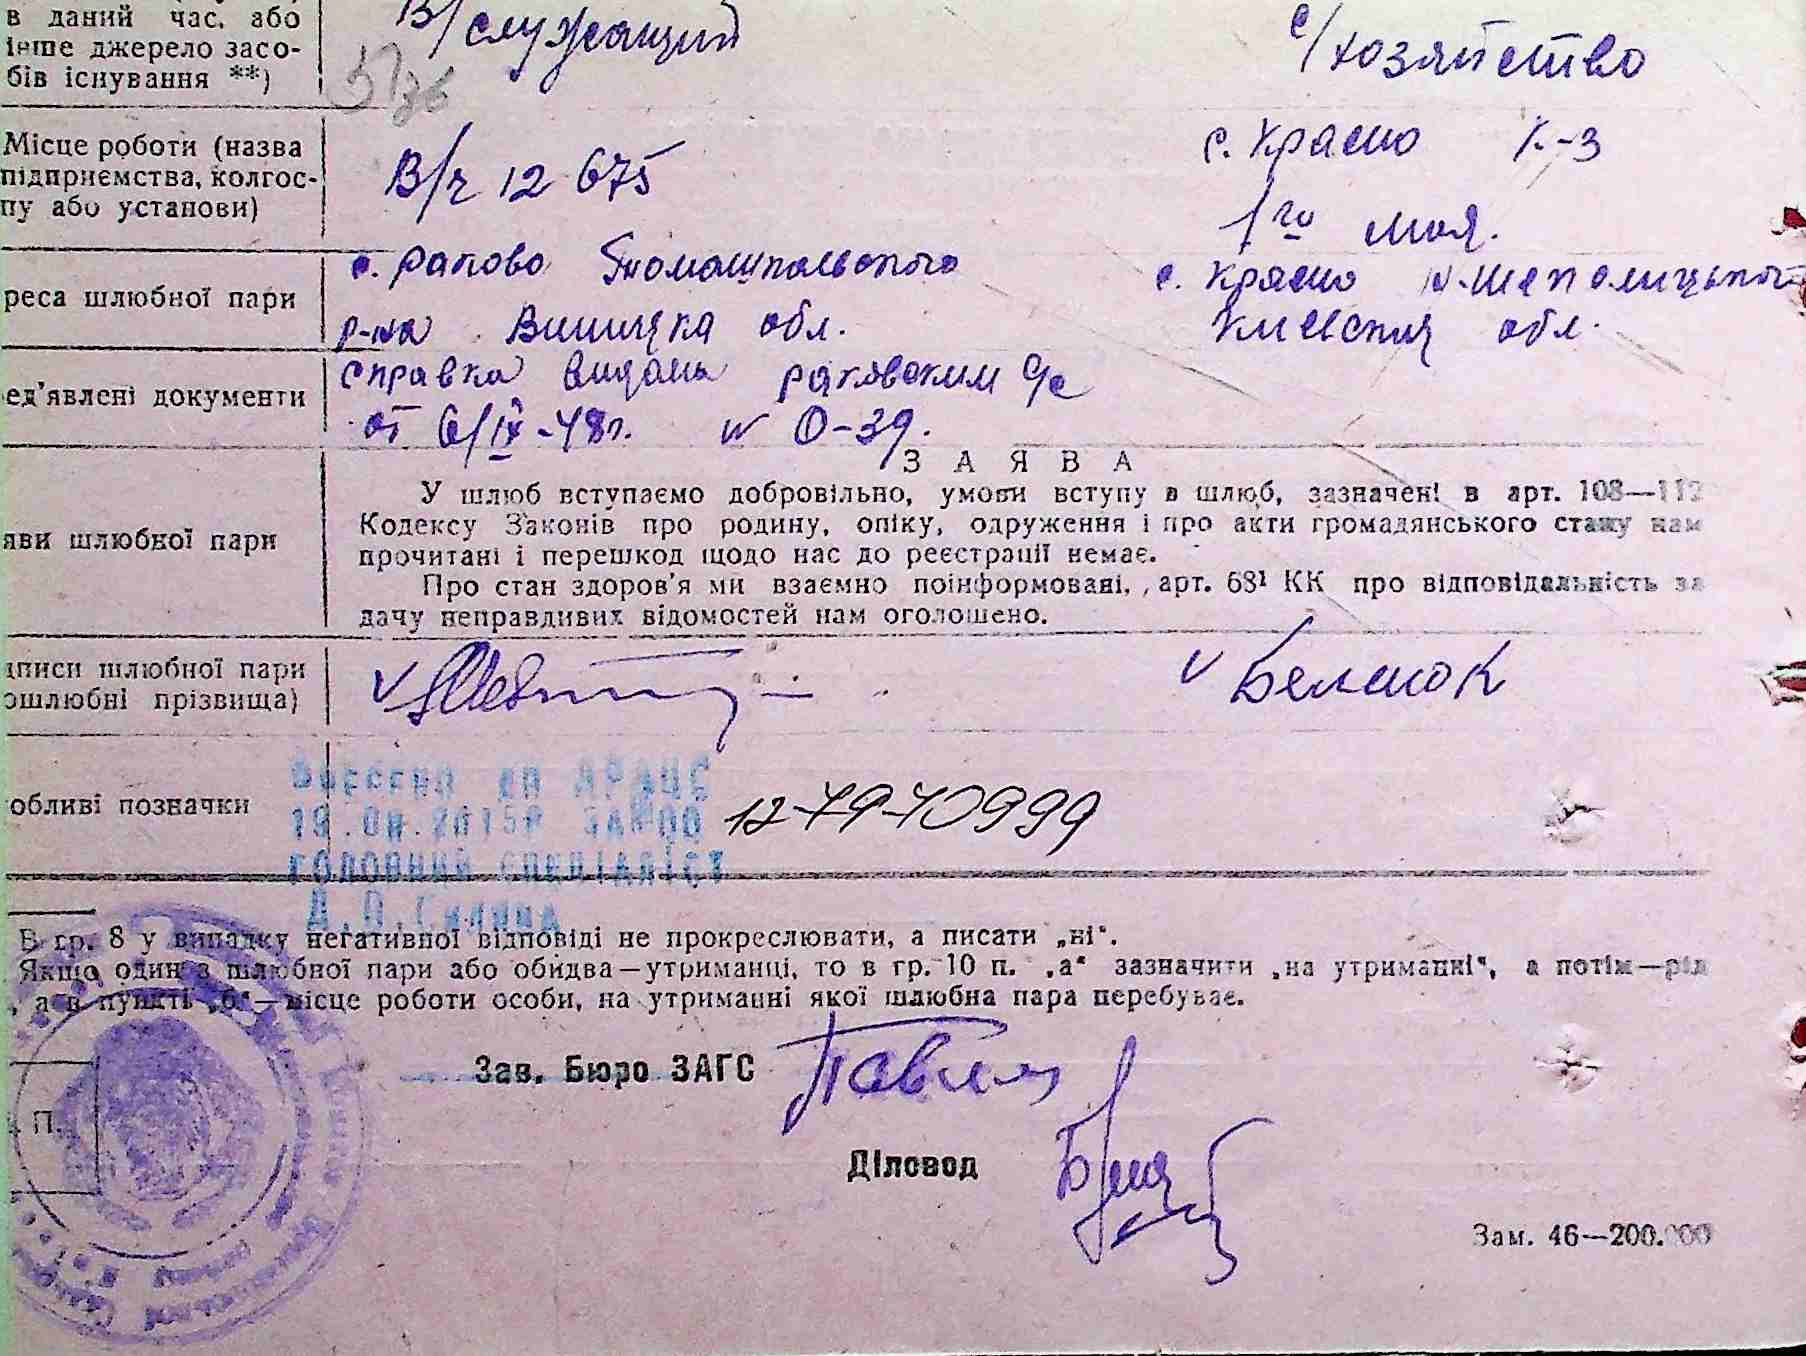 в даний час, або В/служащий с/хозяйство
інше джерело засо-
бів існування **)
Місце роботи (назва с. Красно К-З
підприємства, колгос- В/ч 12 675
пу або установи) 1го мая.
реса шлюбної пари с. Раково Томашпольского с. Красно
р-на Вишицка обл. Киевская обл.
ед'явлені документи справка видана раковским с/с
от 6/IX-48г. № 0-39.
ЗАЯВА
У шлюб вступаємо добровільно, умови вступу в шлюб, зазначені в арт. 108—112
Кодексу Законів про родину, опіку, одруження і про акти громадянського стану нам
яви шлюбної пари прочитані і перешкод щодо нас до реєстрації немає.
Про стан здоров'я ми взаємно поінформовані, арт. 68¹ КК про відповідальність за
дачу неправдивих відомостей нам оголошено.
дписи шлюбної пари
ошлюбні прізвища)
обливі позначки 12-79-10999
ГОЛОВНИЙ СПЕЦІАЛІСТ
В гр. 8 у випадку негативної відповіді не прокреслювати, а писати „ні“.
Якщо один з шлюбної пари або обидва—утриманці, то в гр. 10 п. „а“ зазначити „на утриманні“, а потім—рід
, а в пункті „б“—місце роботи особи, на утриманні якої шлюбна пара перебуває.
Зав. Бюро ЗАГС
П.
Діловод
Зам. 46—200.000